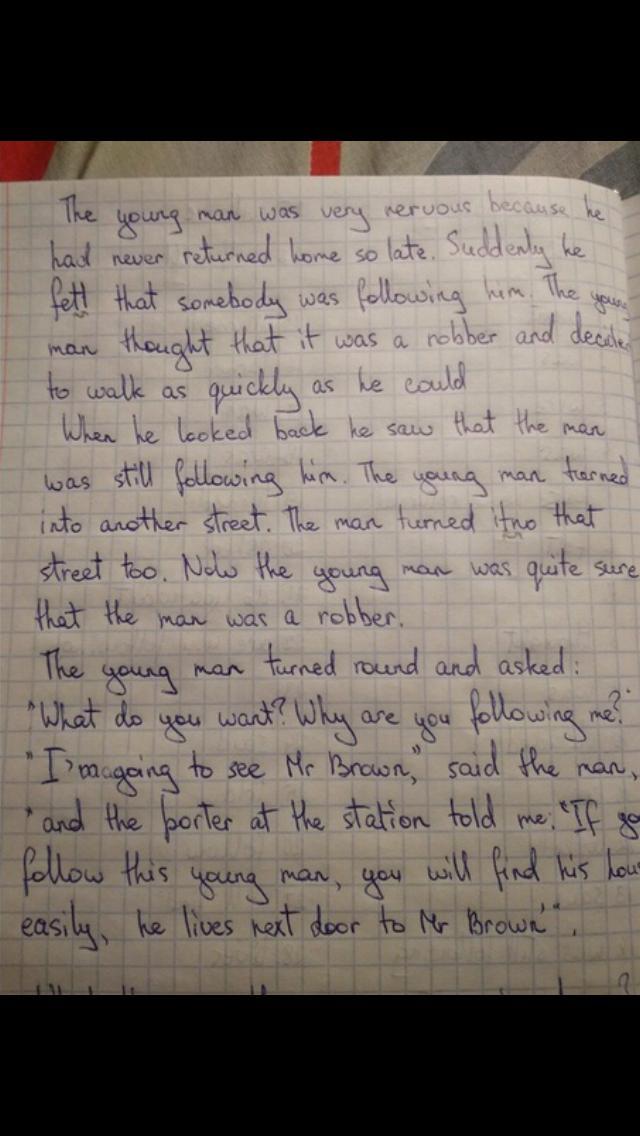 The young man was very nervous because he
had never returned home so late. Suddenly he
fett that somebody was following him. The young
man thought that it was a robber and decide
to walk as quickly as he could
When he looked back he saw that the man
was still following him. The young man turned
into another street. The man turned itno that
street too. Now the young man was quite sure
that the man was a robber.
The young man turned round and asked:
"What do you want? Why are you following me?"
"I'm going to see Mr Brown," said the man,
"and the porter at the station told me: "If yo
follow this young man, you will find his hou
easily, he lives next door to Mr Brown'".